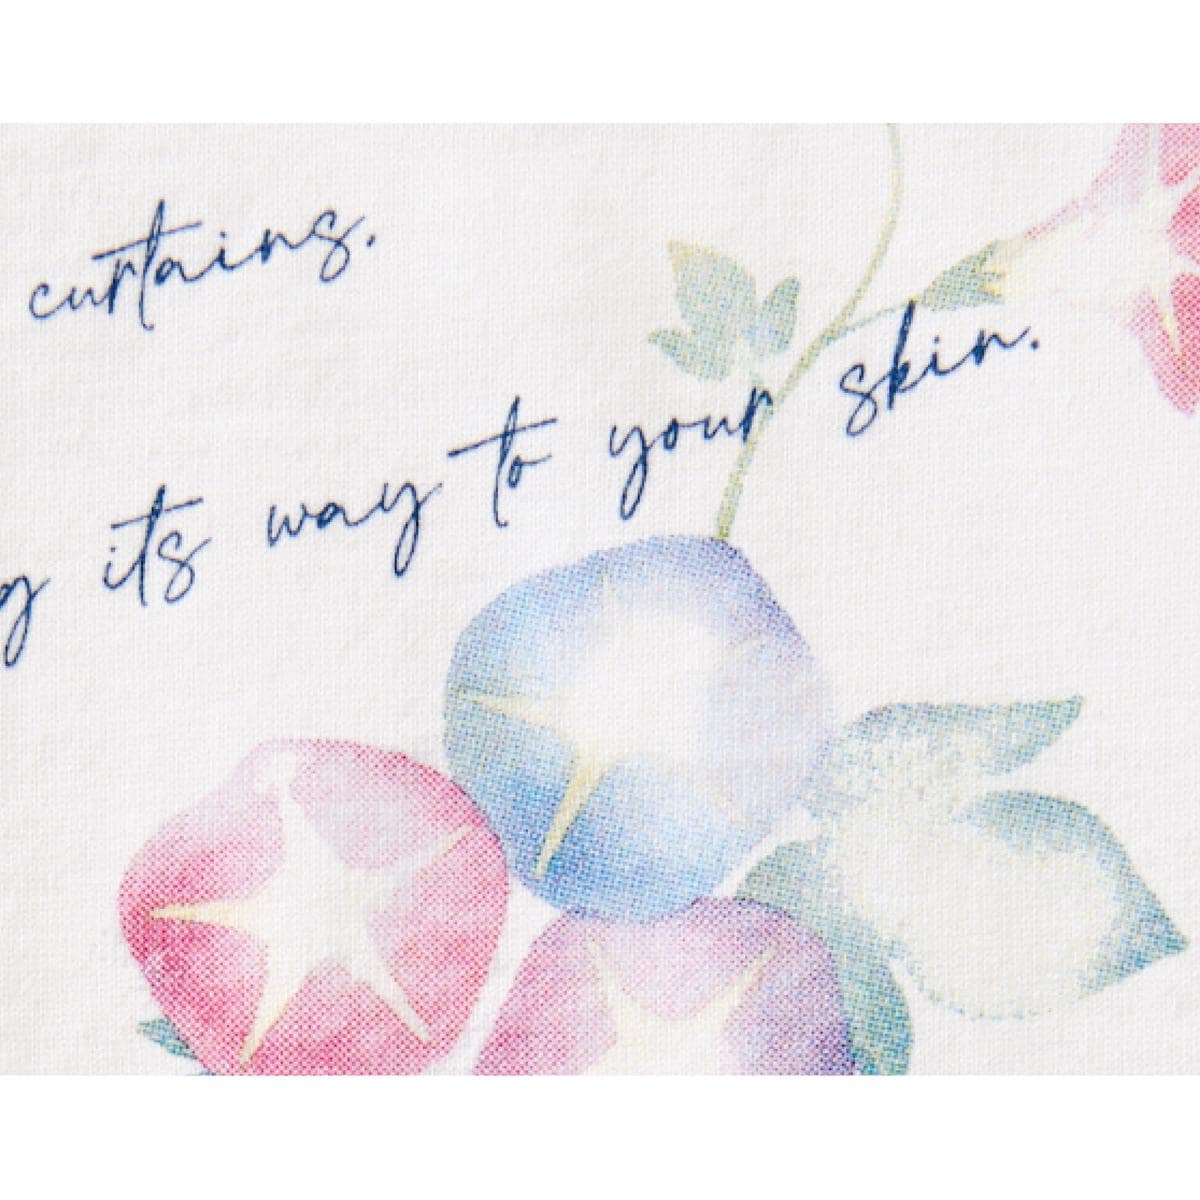 curtains.
g its way to your skin.